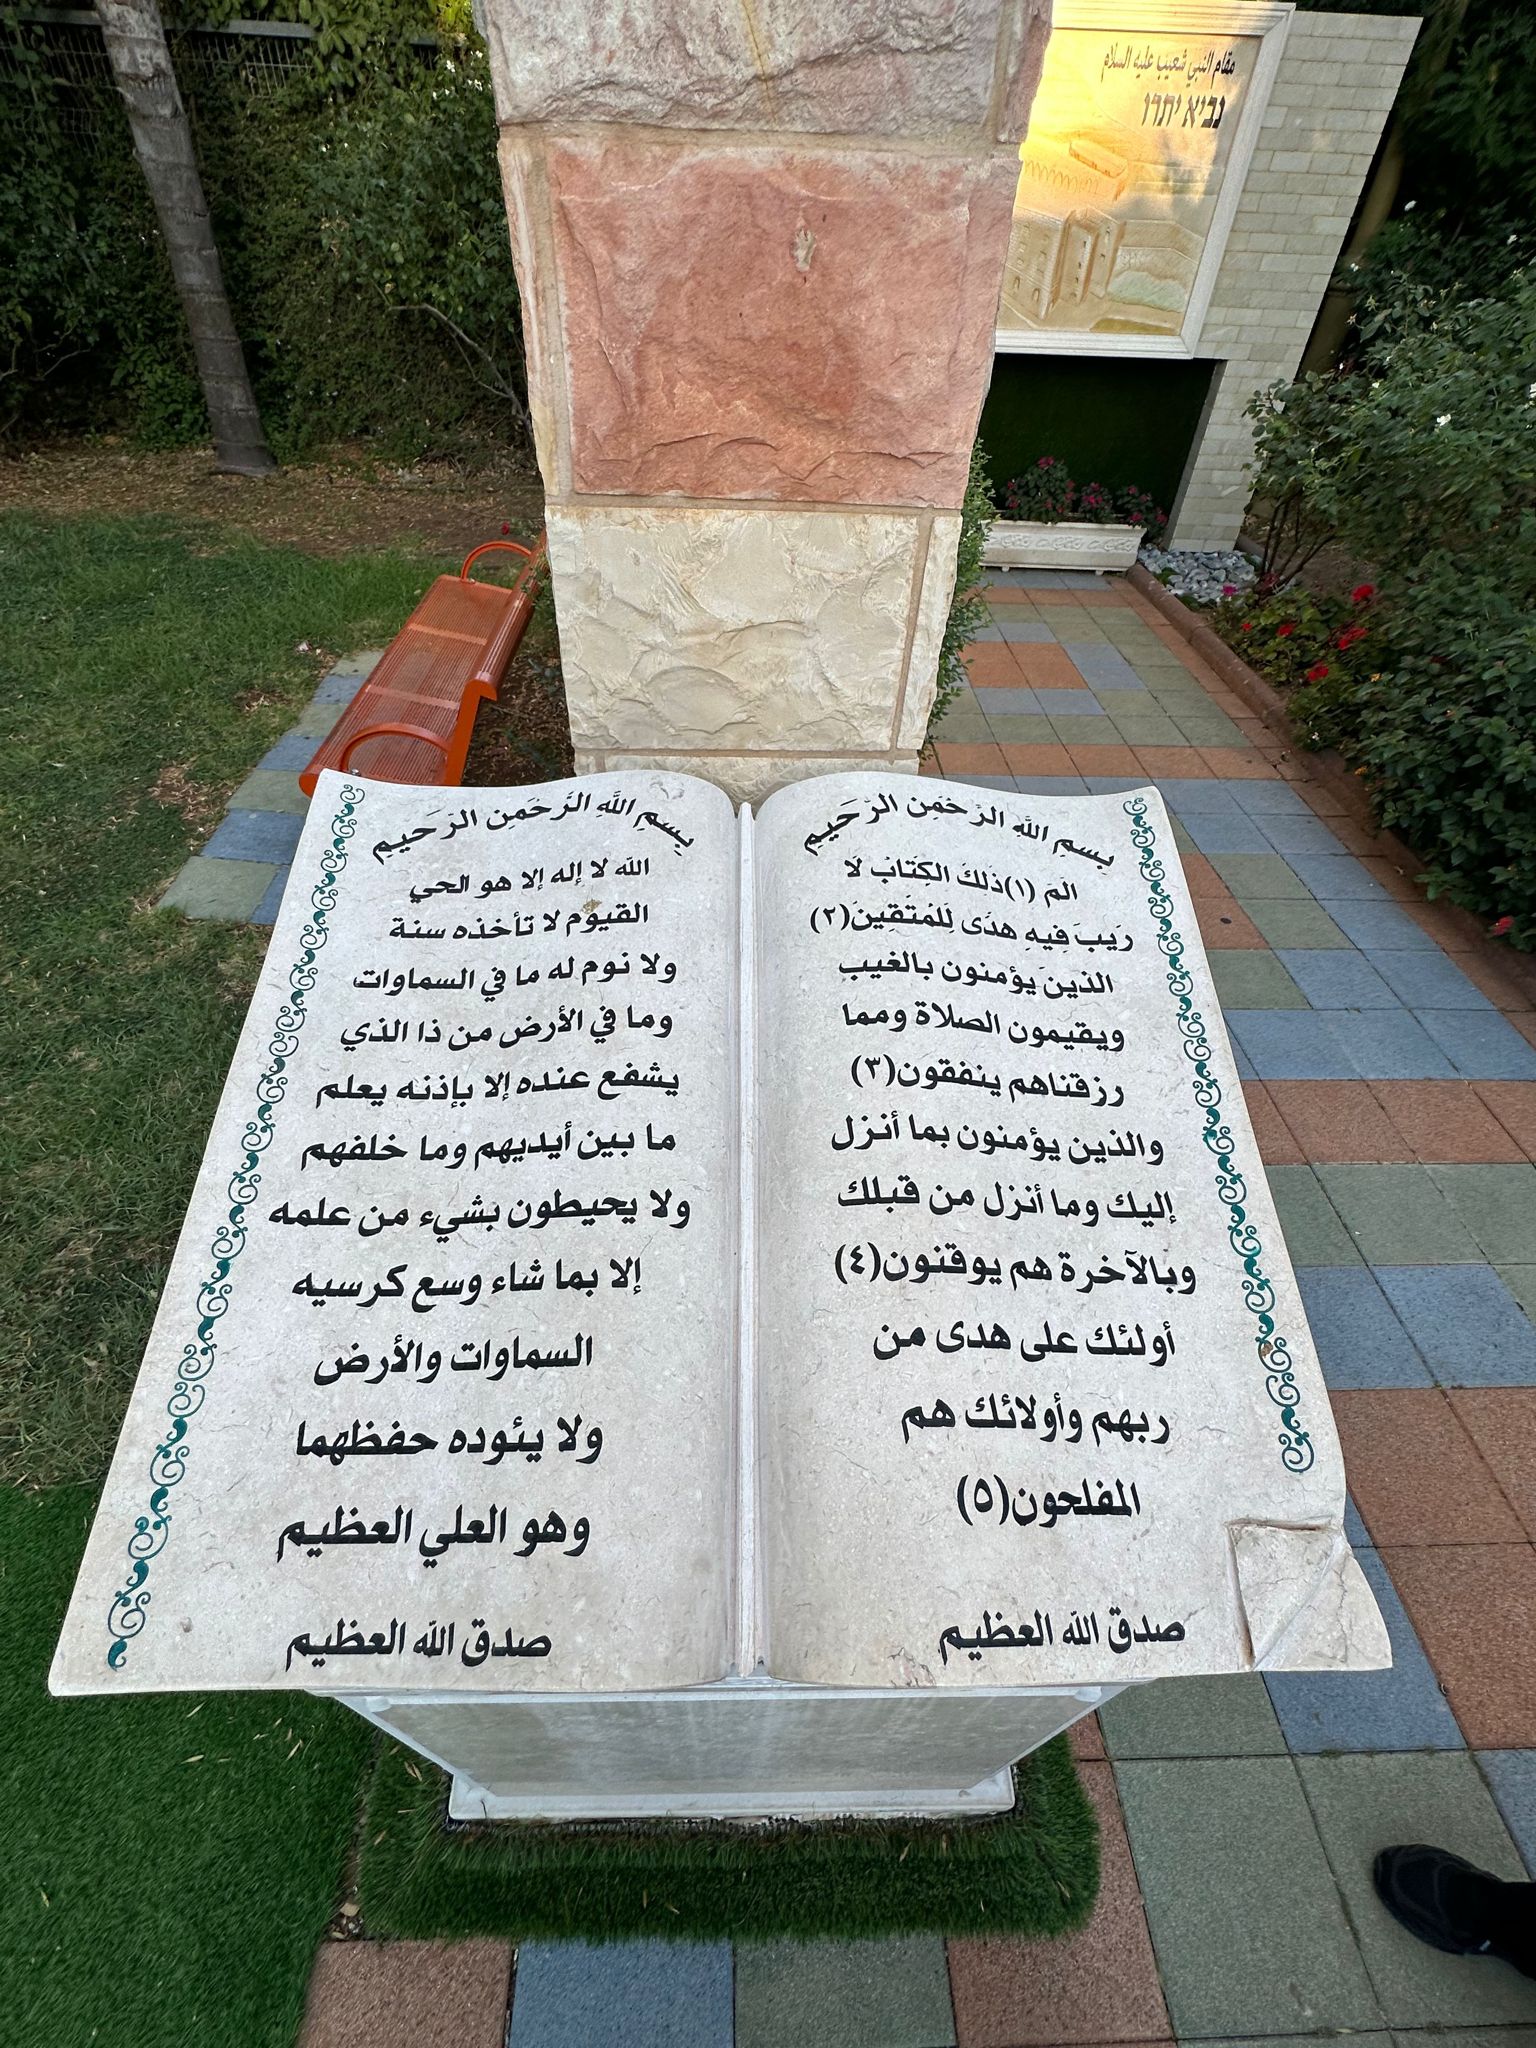 مقام النبي شعيب عليه السلام
נביא יתרו
بسم الله الرحمن الرحيم
الم (١) ذلك الكتاب لا
ريب فيه هدى للمتقين (٢)
الذين يؤمنون بالغيب
ويقيمون الصلاة ومما
رزقناهم ينفقون (٣)
والذين يؤمنون بما أنزل
إليك وما أنزل من قبلك
وبالآخرة هم يوقنون (٤)
أولئك على هدى من
ربهم وأولائك هم
المفلحون (٥)
صدق الله العظيم
بِسمِ اللَّهِ الرَّحمَنِ الرَحيمِ
الله لا إله إلا هو الحي
القيوم لا تأخذه سنة
ولا نوم له ما في السماوات
وما في الأرض من ذا الذي
يشفع عنده إلا بإذنه يعلم
ما بين أيديهم وما خلفهم
ولا يحيطون بشيء من علمه
إلا بما شاء وسع كرسيه
السماوات والأرض
ولا يئوده حفظهما
وهو العلي العظيم
صدق الله العظيم